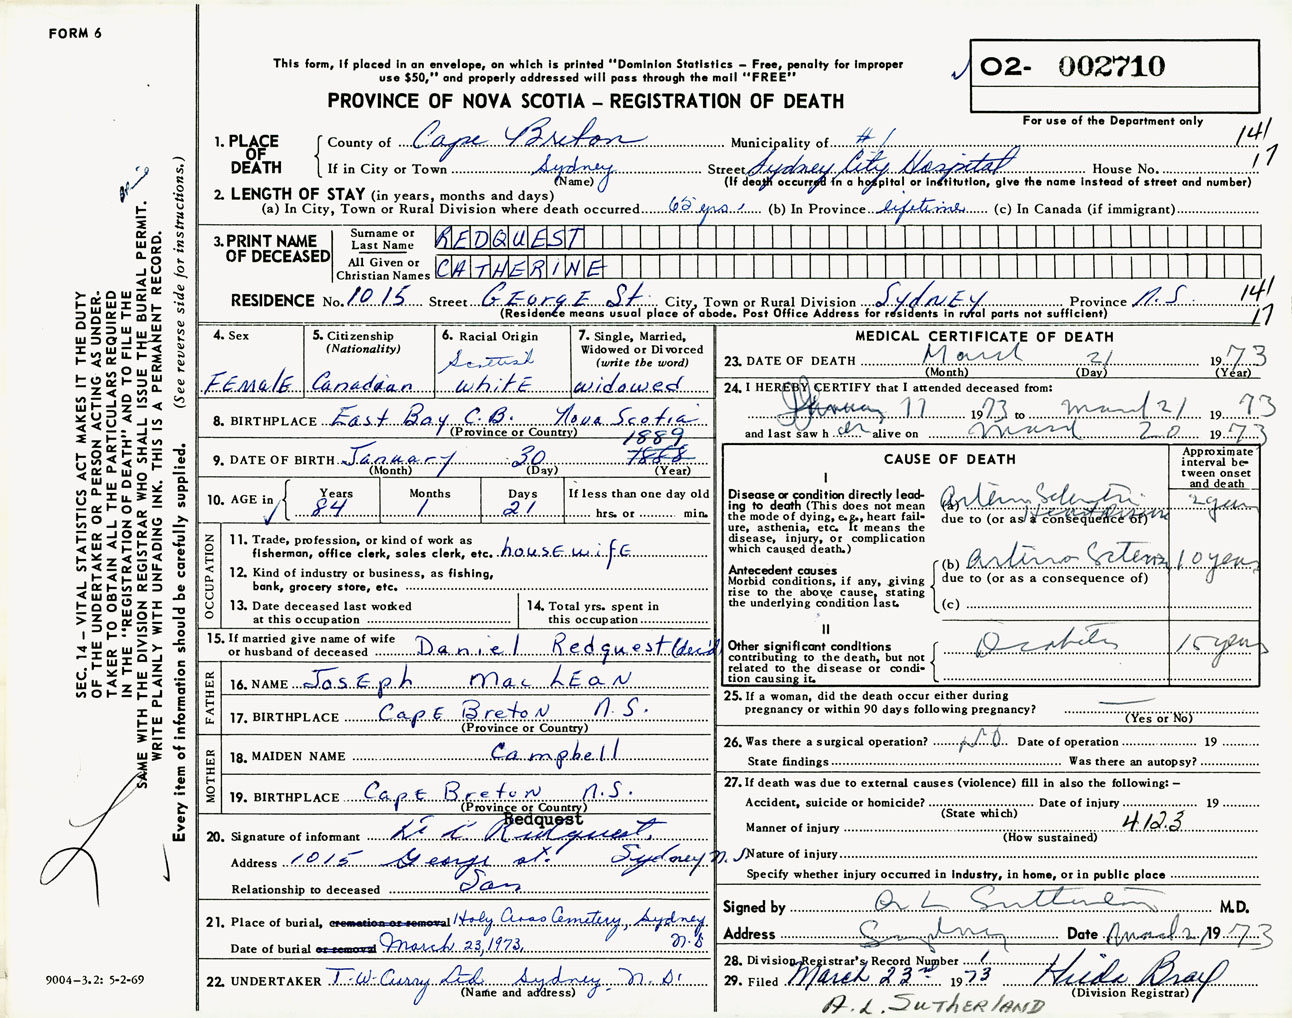 FORM 6
O2- 002710
This form, if placed in an envelope, on which is printed "Dominion Statistics – Free, penalty for improper
use $50," and properly addressed will pass through the mail "FREE"
PROVINCE OF NOVA SCOTIA – REGISTRATION OF DEATH
For use of the Department only
1. PLACE OF DEATH
County of Cape Breton Municipality of #1 141
If in City or Town Sydney Street Sydney City Hospital House No. 17
(Name) (If death occurred in a hospital or institution, give the name instead of street and number)
2. LENGTH OF STAY (in years, months and days)
(a) In City, Town or Rural Division where death occurred 65 yrs. (b) In Province lifetime (c) In Canada (if immigrant)
3. PRINT NAME OF DECEASED
Surname or Last Name REDQUEST
All Given or Christian Names CATHERINE
RESIDENCE No. 1015 Street GEORGE St. City, Town or Rural Division SydNEY Province N.S 141
(Residence means usual place of abode. Post Office Address for residents in rural parts not sufficient) 17
4. Sex FEMALE
5. Citizenship (Nationality) Canadian
6. Racial Origin Scottish white
7. Single, Married, Widowed or Divorced (write the word) widowed
8. BIRTHPLACE East Bay C.B. Nova Scotia
(Province or Country)
1889
9. DATE OF BIRTH January 30 1888
(Month) (Day) (Year)
10. AGE in Years 84 Months 1 Days 21 If less than one day old hrs. or min.
OCCUPATION
11. Trade, profession, or kind of work as fisherman, office clerk, sales clerk, etc. housewife
12. Kind of industry or business, as fishing, bank, grocery store, etc.
13. Date deceased last worked at this occupation
14. Total yrs. spent in this occupation
15. If married give name of wife or husband of deceased Daniel Redquest (dec'd)
FATHER
16. NAME Joseph MacLEAN
17. BIRTHPLACE CAPE Breton N.S.
(Province or Country)
MOTHER
18. MAIDEN NAME Campbell
19. BIRTHPLACE CAPE Breton N.S.
(Province or Country)
Redquest
20. Signature of informant Redquest
Address 1015 George st. Sydney N.S
Relationship to deceased Son
21. Place of burial, cremation or removal Holy Cross Cemetery, Sydney
N.S
Date of burial or removal March 23, 1973,
22. UNDERTAKER T.W. Curry Ltd Sydney, N.S.
(Name and address)
MEDICAL CERTIFICATE OF DEATH
23. DATE OF DEATH March 21 1973
(Month) (Day) (Year)
24. I HEREBY CERTIFY that I attended deceased from:
January 17 1973 to March 21 1973
and last saw her alive on March 20 1973
CAUSE OF DEATH
Approximate interval between onset and death
I
Disease or condition directly leading to death (This does not mean the mode of dying, e.g., heart failure, asthenia, etc. It means the disease, injury, or complication which caused death.)
(a) 2 years
due to (or as a consequence of)
Antecedent causes
Morbid conditions, if any, giving rise to the above cause, stating the underlying condition last.
(b) 10 years
due to (or as a consequence of)
(c)
II
Other significant conditions contributing to the death, but not related to the disease or condition causing it.
Diabetes 15 years
25. If a woman, did the death occur either during
pregnancy or within 90 days following pregnancy?
(Yes or No)
26. Was there a surgical operation? NO Date of operation 19
State findings Was there an autopsy?
27. If death was due to external causes (violence) fill in also the following: –
Accident, suicide or homicide? Date of injury 19
(State which)
Manner of injury 412.3
(How sustained)
Nature of injury
Specify whether injury occurred in industry, in home, or in public place
Signed by A L Sutherland M.D.
Address Sydney Date March 21 1973
28. Division Registrar's Record Number 1
29. Filed March 23rd 1973 Hilda Bray
(Division Registrar)
A.L. SUTHERLAND
SEC. 14 – VITAL STATISTICS ACT MAKES IT THE DUTY
OF THE UNDERTAKER OR PERSON ACTING AS UNDER-
TAKER TO OBTAIN ALL THE PARTICULARS REQUIRED
IN THE "REGISTRATION OF DEATH" AND TO FILE THE
SAME WITH THE DIVISION REGISTRAR WHO SHALL ISSUE THE BURIAL PERMIT.
WRITE PLAINLY WITH UNFADING INK. THIS IS A PERMANENT RECORD.
Every item of information should be carefully supplied. (See reverse side for instructions.)
9004–3.2: 5-2-69